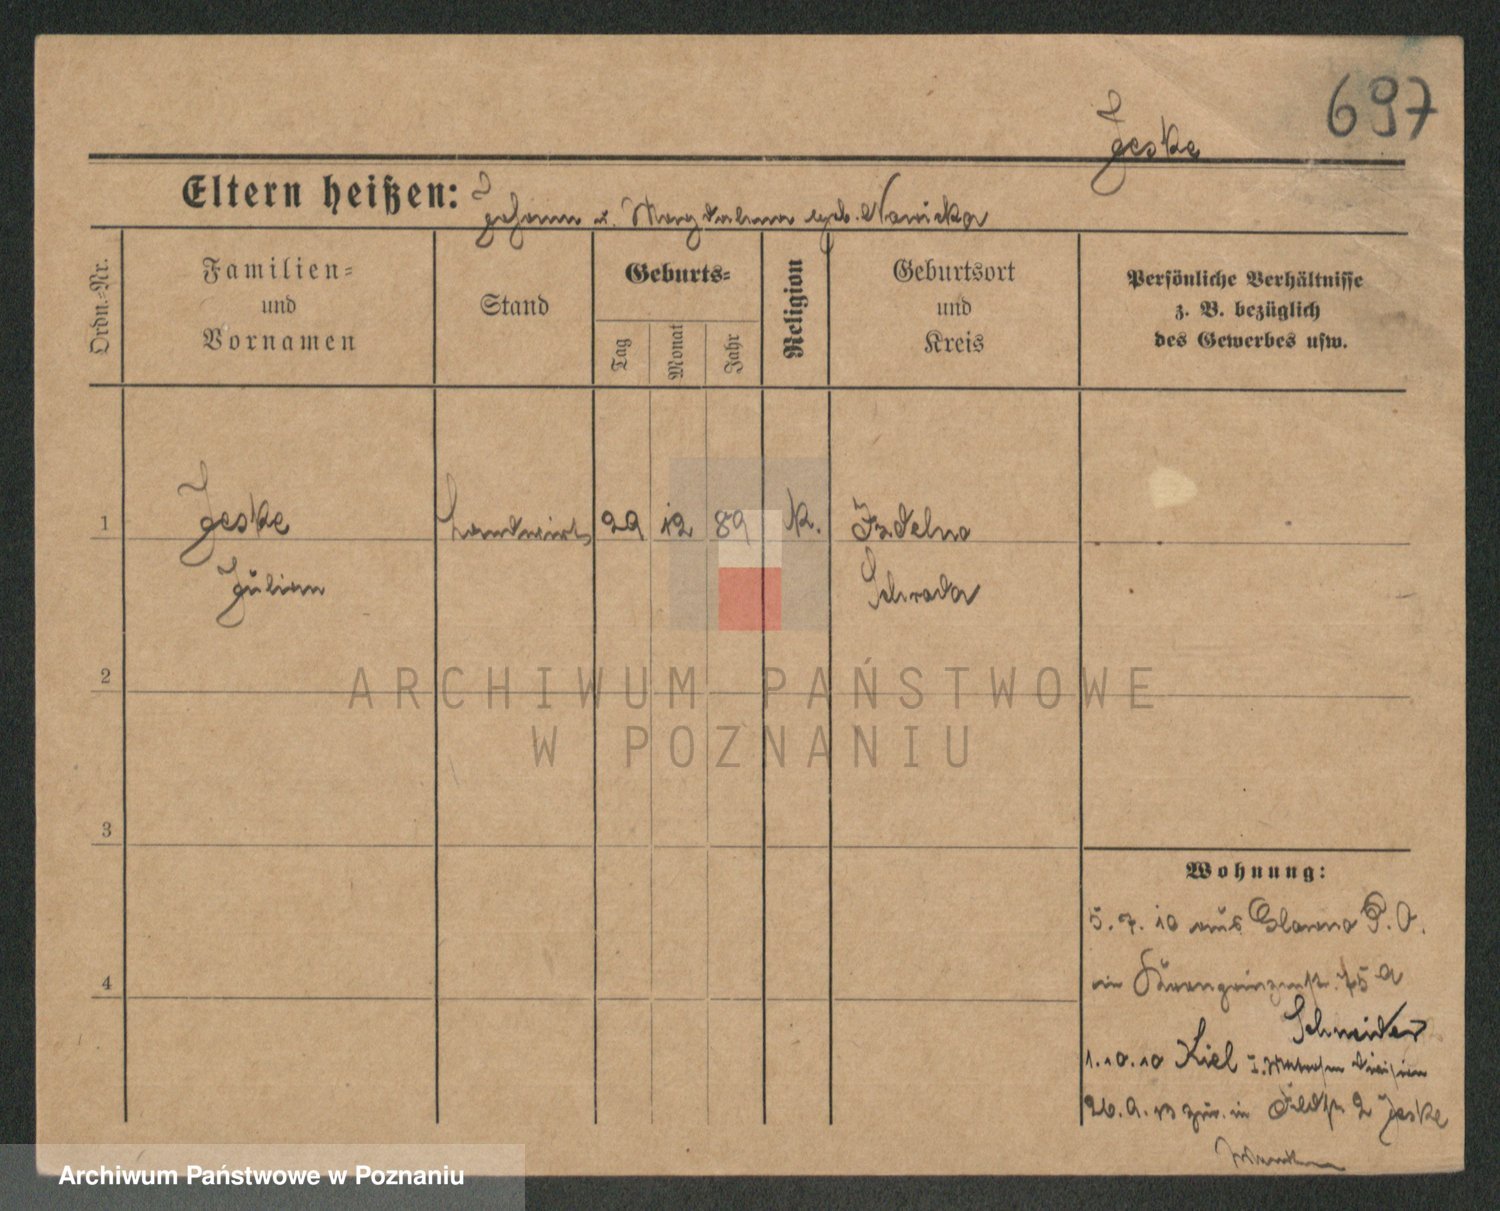 697
Jeske
Eltern heißen: Johann u. Magdalena geb. Nawicka
Ordn.-Nr.
Familien=
und
Vornamen
Stand
Geburts=
Tag
Monat
Jahr
Religion
Geburtsort
und
Kreis
Persönliche Verhältnisse
z. B. bezüglich
des Gewerbes usw.
1
Jeske
Julian
Landwirt
29 12 89
k.
Zdelno
Schroda
2
3
4
Wohnung:
5. 7. 10 aus P. O.
in Kronprinzenstr. 75 a
Schneider
1.10.10 Kiel I. Matrosen Division
26.9.13 zur. in 2 Jeske
ARCHIWUM PAŃSTWOWE
W POZNANIU
Archiwum Państwowe w Poznaniu